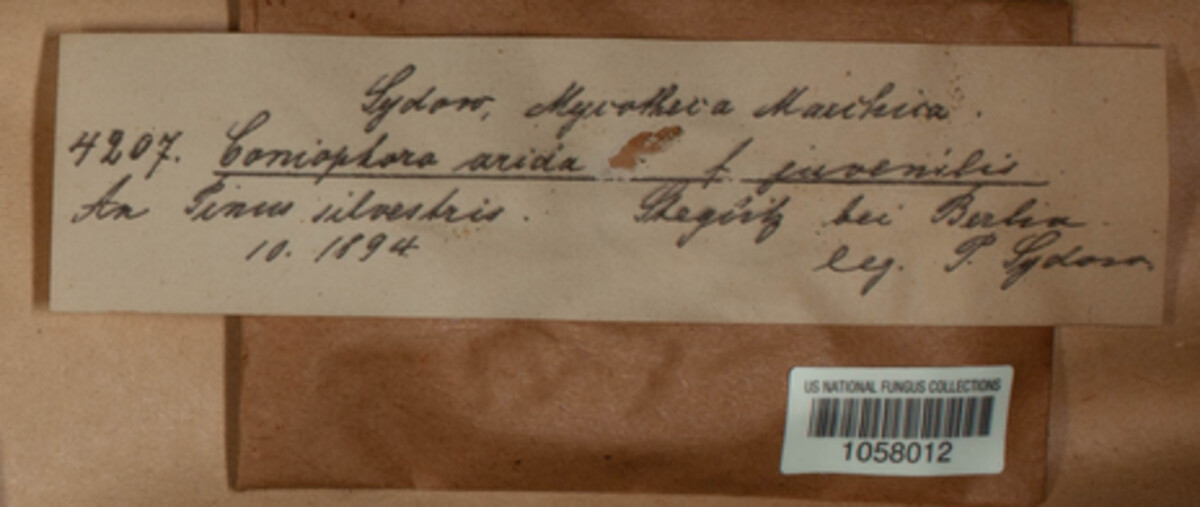 Sydow, Mycotheca Marchica.
4207. Coniophora arida f. juvenilis
An Pinus silvestris. Steglitz bei Berlin
10. 1894 leg. P. Sydow.
US NATIONAL FUNGUS COLLECTIONS
1058012